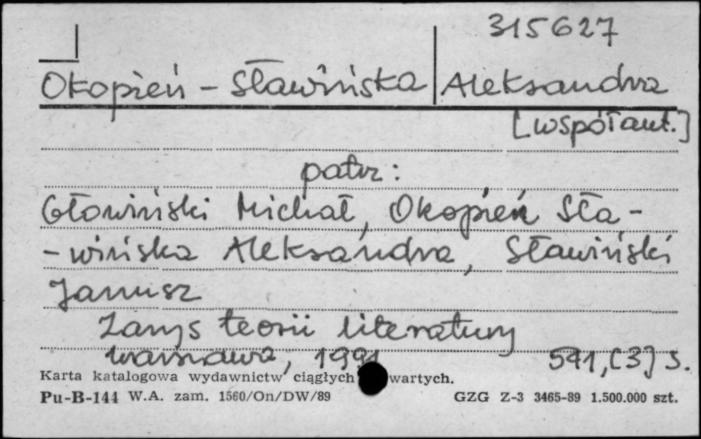 315627
Okopień - Sławińska Aleksandra
[współaut.]
patrz:
Głowiński Michał, Okopień Sła-
-wińska Aleksandra, Sławiński
Janusz
Zarys teorii literatury
Warszawa, 1991 591,[3] s.
Karta katalogowa wydawnictw ciągłych wartych.
Pu-B-144 W.A. zam. 1560/On/DW/89 GZG Z-3 3465-89 1.500.000 szt.